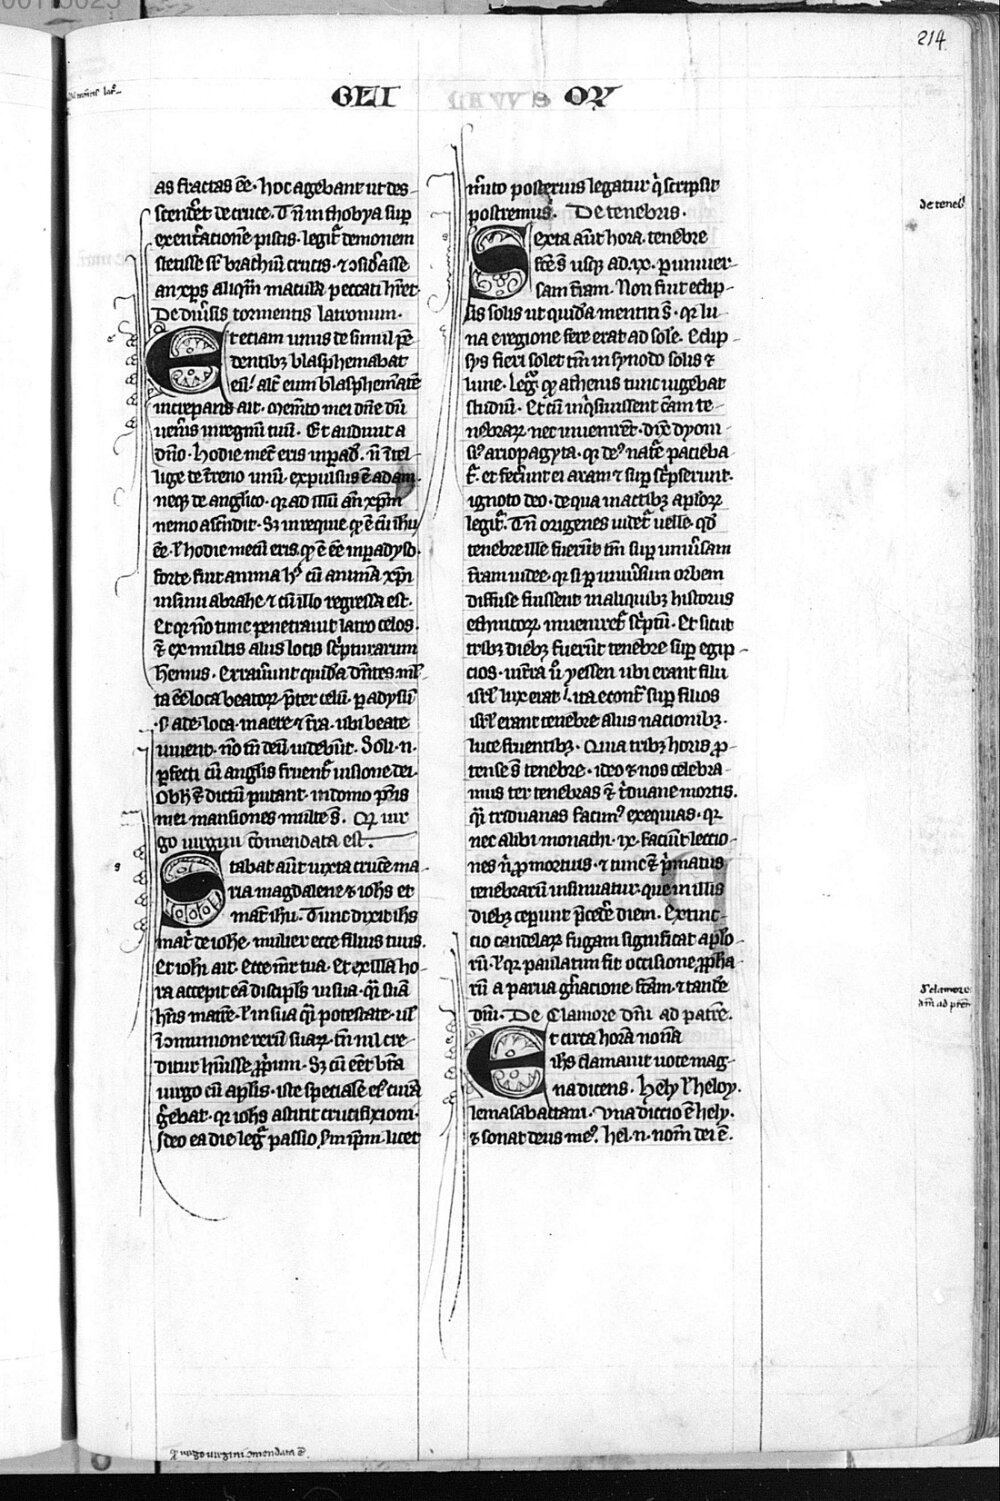 214
GELI OR
as fractas ee. hoc agebant ut des-
cendet de cruce. D n in thobya sup
exentationē piscis. legit demonem
stetisse sr brachiū crucis. ⁊ ɔsidasse
an xps aliqm maculā peccati hret.
De diuersis tormentis latronum.
Et etiam unus de simul pē
dentibꝫ blasphemabat
eū. alt eum blasphemāte
increpans ait. memto mei dne dū
ueneris in regnū tuū. Et audiuit a
dno. hodie mecū eris in pad. n itel-
lige de treno unū. expulsus ē adam.
neqꝫ de anglico. qꝛ ad illū an xpm
nemo ascendit. Sꝫ in requie qꝫ ē cū ihu
ee. l hodie mecū eris. qꝫ ē ee in padyso.
forte fuit anima hꝰ cū anima xpi
in sinu abrahe ⁊ cū illo regressa est.
Et qꝛ no tunc penetrauit latro celos.
⁊ ex multis aliis locis scpturarum
hemus. Errauerunt quidā dntes ml-
ta ee loca beatoꝝ pter celū. padysū
.s. ade loca in aere ⁊ tra. ubi beate
uiuent. no tn deū uidebūt. Soli .n.
pfecti cū anglis fruent uisione dei.
Ob h ⁊ dictū putant. in domo pris
mei mansiones multe s. Qꝛ uir
go uirgini comendata est.
Stabat aut iuxta crucē ma-
ria magdalene ⁊ iohs et
mat ihu. Tunc dixit ihs
mat de iohe. mulier ecce filius tuus.
Et iohi ait. Ecce mr tua. Et ex illa ho-
ra accepit eā discipls in sua. qi suā
hns matre. l in sua qi potestate. ul
i ɔmunione rerū suaꝝ. tn nil cre-
ditur huisse ppium. Sꝫ cū eet bta
uirgo cū aplis. iste speciale eꝰ curā
gebat. qꝛ iohs astitit crucifixioni.
Ideo ea die leg passio. licet
mito posterius legatur qi scripsit
postremus. De tenebris.
Sexta aut hora. tenebre
fce s usqꝫ ad .ix. p uniuer-
sam tram. Non fuit eclip-
sis solis ut quidā mentiti s. qꝛ lu-
na e regione fere erat ad sole. Eclip-
sys fieri solet tm in synodo solis ⁊
lune. Leg qꝫ athenis tunc uigebat
studiū. Et cū inqsiuissent cam te-
nebraꝝ nec inuenirent. dix dyoni-
siꝰ ariopagyta. qꝛ deꝰ nate pacieba-
t. et fecerunt ei aram ⁊ sup scpserunt.
ignoto deo. de qua in actibꝫ apsloꝝ
legit. Tn origenes uidet uelle. qd
tenebre ille fuerūt tm sup uniusam
tram iudee. qꝛ si p uniusum orbem
diffuse fuissent in aliquibꝫ historiis
ethnicoꝝ inueniret scptū. Et sicut
tribꝫ diebꝫ fuerūt tenebre sup egip-
cios. in tra u yessen ubi erant filii
isrl lux erat. ita econt sup filios
isrl erant tenebre aliis nacionibꝫ.
luce fruentibꝫ. Quia tribꝫ horis p-
tense s tenebre. ideo ⁊ nos celebra-
mus ter tenebras ⁊ triduane mortis.
qi triduanas facimꝰ exequias. qꝛ
nec alibi monachi .ix. faciunt lectio-
nes n p mortuis. ⁊ tunc ⁊ pmatus
tenebrarū insinuatur. que in illis
diebꝫ ceperunt pcedere diem. Extinc-
tio candelaꝝ fugam significat apsto-
rū. l qꝛ paulatim fit occisione ppha-
rū a parua gnacione scam. ⁊ tande
dni. De Clamore dni ad patre.
Et circa horā nonā
ihs clamauit uoce mag-
na dicens. Hely l heloy.
lemasabactani. Una diccio ē hely.
⁊ sonat deus meꝰ. hel .n. nom dei ē.
de teneb
d' clamore
dni ad prem
qꝛ uirgo uirgini ɔmendata ē